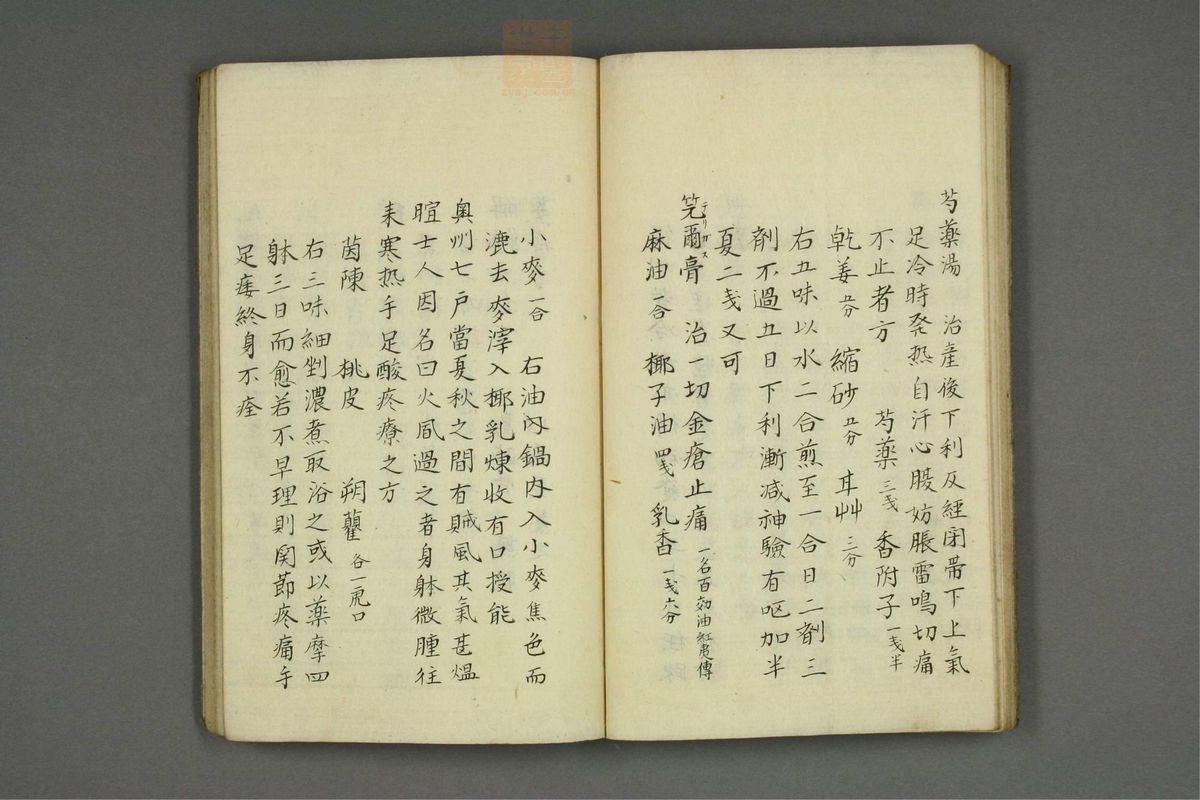 芍薬湯 治產後下利及經閉帶下上氣
足冷時発热自汗心腹妨脹雷鳴切痛
不止者方 芍薬三戔 香附子一戔半
乾姜五分 縮砂五分 甘艸三分
右五味以水二合煎至一合日二劑三
劑不過五日下利漸减神驗有呕加半
夏二戔又可
爾膏 治一切金瘡止痛 一名百効油紅夷傳
麻油一合 椰子油四戔 乳香一戔六分
小麥一合 右油內鍋內入小麥焦色而
漉去麥滓入椰乳煉收有口授能
奥州七戶當夏秋之間有賊風其氣甚熅
暄士人因名曰火凬過之者身躰微腫往
耒寒热手足酸疼療之方
茵陳 桃皮 朔藋各一虎口
右三味細剉濃煮取浴之或以薬摩四
躰三日而愈若不早理則関節疼痛手
足痿終身不痊